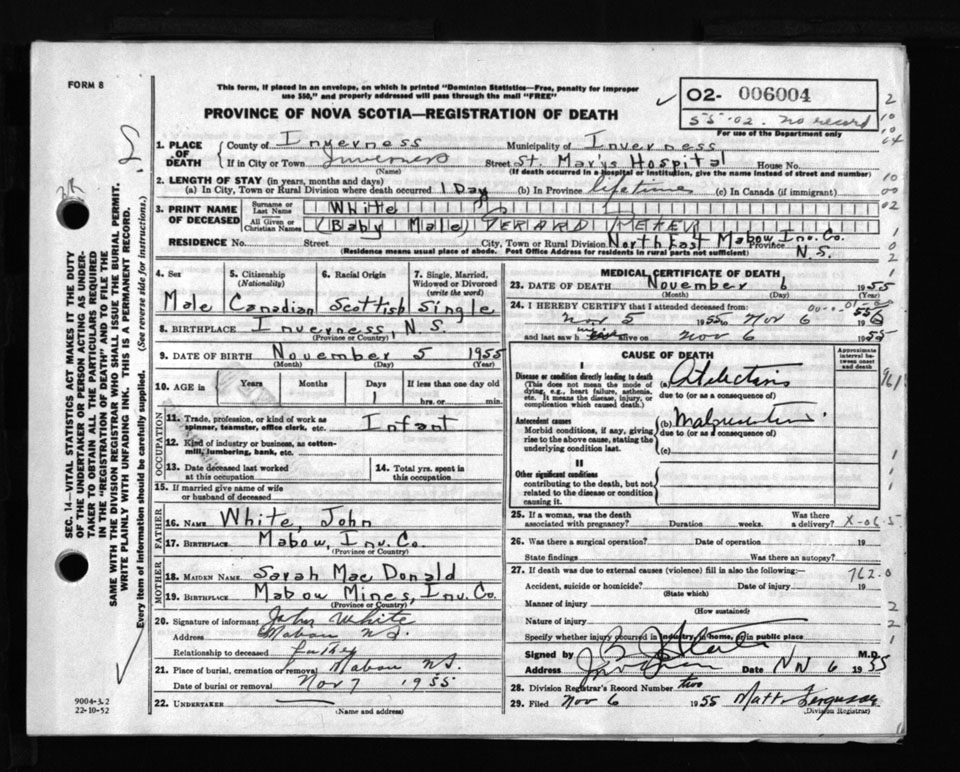 FORM 8
This form, if placed in an envelope, on which is printed "Dominion Statistics—Free, penalty for improper
use $50," and properly addressed will pass through the mail "FREE"
PROVINCE OF NOVA SCOTIA—REGISTRATION OF DEATH
02- 006004
55-02. no record
For use of the Department only
1. PLACE OF DEATH
County of Inverness Municipality of Inverness
If in City or Town Inverness Street St. Mary's Hospital House No.
(Name) (If death occurred in a hospital or institution, give the name instead of street and number)
2. LENGTH OF STAY (in years, months and days)
(a) In City, Town or Rural Division where death occurred 1 Day (b) In Province lifetime (c) In Canada (if immigrant)
3. PRINT NAME OF DECEASED
Surname or Last Name White
All Given or Christian Names (Baby Male)
RESIDENCE No. Street City, Town or Rural Division North East Mabow Inv. Co. Province N.S.
(Residence means usual place of abode. Post Office Address for residents in rural parts not sufficient)
4. Sex Male
5. Citizenship (Nationality) Canadian
6. Racial Origin Scottish
7. Single, Married, Widowed or Divorced (write the word) Single
8. BIRTHPLACE Inverness, N.S.
(Province or Country)
9. DATE OF BIRTH November 5 1955
(Month) (Day) (Year)
10. AGE in Years Months Days 1 If less than one day old hrs. or min.
OCCUPATION
11. Trade, profession, or kind of work as spinner, teamster, office clerk, etc. Infant
12. Kind of industry or business, as cotton-mill, lumbering, bank, etc.
13. Date deceased last worked at this occupation
14. Total yrs. spent in this occupation
15. If married give name of wife or husband of deceased
FATHER
16. NAME White, John
17. BIRTHPLACE Mabow, Inv. Co.
(Province or Country)
MOTHER
18. MAIDEN NAME Sarah MacDonald
19. BIRTHPLACE Mabow Mines, Inv. Co.
(Province or Country)
20. Signature of informant John White
Address Mabou NS.
Relationship to deceased Father
21. Place of burial, cremation or removal Mabou NS.
Date of burial or removal Nov 7 1955
22. UNDERTAKER
(Name and address)
MEDICAL CERTIFICATE OF DEATH
23. DATE OF DEATH November 6 1955
(Month) (Day) (Year)
24. I HEREBY CERTIFY that I attended deceased from
Nov 5 1955 Nov 6
and last saw h alive on Nov 6 1955
CAUSE OF DEATH
Approximate interval between onset and death
I
Disease or condition directly leading to death
(This does not mean the mode of dying, e.g., heart failure, asthenia, etc. It means the disease, injury, or complication which caused death.)
(a) Atelectasis
due to (or as a consequence of)
Antecedent causes
Morbid conditions, if any, giving rise to the above cause, stating the underlying condition last.
(b)
due to (or as a consequence of)
(c)
II
Other significant conditions
contributing to the death, but not related to the disease or condition causing it.
25. If a woman, was the death associated with pregnancy? Duration weeks. Was there a delivery?
26. Was there a surgical operation? Date of operation 19
State findings Was there an autopsy?
27. If death was due to external causes (violence) fill in also the following:—
762.0
Accident, suicide or homicide? Date of injury 19
(State which)
Manner of injury
(How sustained)
Nature of injury
Specify whether injury occurred in industry, in home, or in public place
Signed by M.D.
Address Date Nov 6 1955
28. Division Registrar's Record Number two
29. Filed Nov 6 1955 Matt Ferguson
(Division Registrar)
SEC. 14—VITAL STATISTICS ACT MAKES IT THE DUTY
OF THE UNDERTAKER OR PERSON ACTING AS UNDER-
TAKER TO OBTAIN ALL THE PARTICULARS REQUIRED
IN THE "REGISTRATION OF DEATH" AND TO FILE THE
SAME WITH THE DIVISION REGISTRAR WHO SHALL ISSUE THE BURIAL PERMIT.
WRITE PLAINLY WITH UNFADING INK. THIS IS A PERMANENT RECORD.
Every item of information should be carefully supplied. (See reverse side for instructions.)
9004-3.2
22-10-52